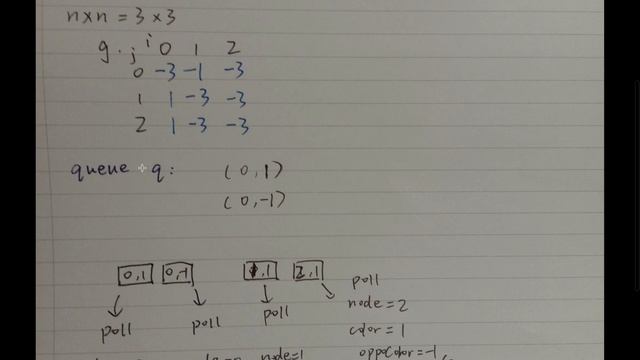 n×n = 3 × 3
g. j i 0 1 2
0 -3 -1 -3
1 1 -3 -3
2 1 -3 -3
queue q: (0,1)
(0,-1)
0,1 0,-1 1,1 2,1
poll poll poll poll
node = 2
color = 1
node=1 oppocolor = -1